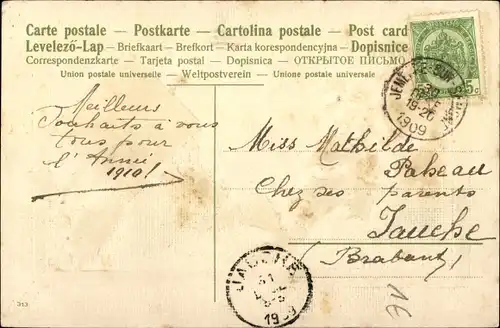 Carte postale — Postkarte — Cartolina postale — Post card
Levelező-Lap — Briefkaart — Brefkort — Karta korespondencyjna — Dopisnice
Correspondenzkarte — Tarjeta postal — Dopisnica — ОТКРЫТОЕ ПИСЬМО
Union postale universelle — Weltpostverein — Union postale universelle
Meilleurs
Souhaits à vous
tous pour
l'Année
1910!
Miss Mathilde
Paheau
Chez ses parents
Jauche
(Brabant)
JEMEPPE-SUR-
19-20
1909
5c
JAUCHE
31
1909
16
313